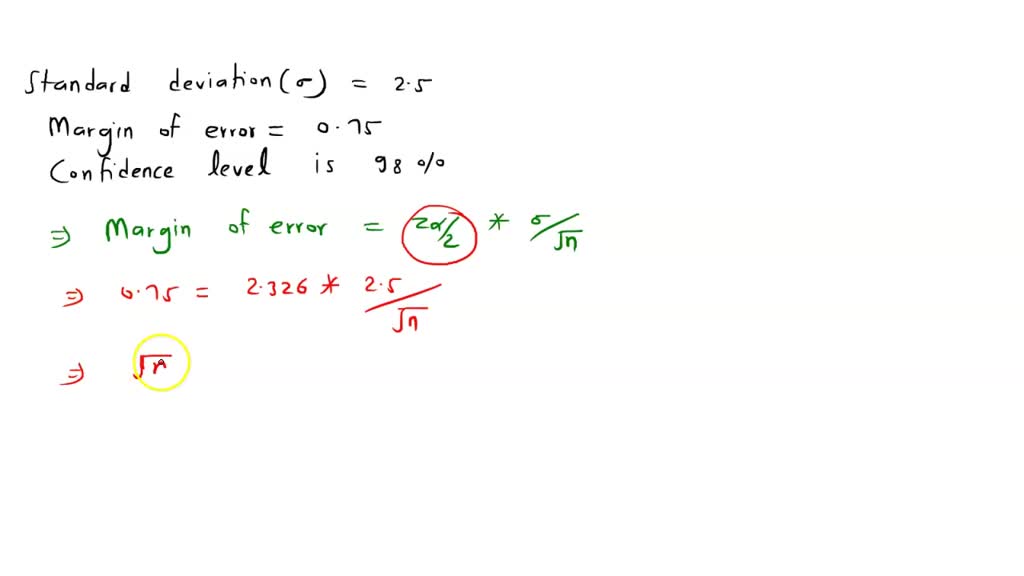 Standard deviation (σ) = 2.5
Margin of error = 0.75
Confidence level is 98 %
⇒ Margin of error = zα/2 * σ/√n
⇒ 0.75 = 2.326 * 2.5/√n
⇒ √n